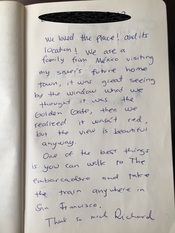 We loved the place! and its
location! We are a
family from México visiting
my sister's future home
town, it was great seeing
by the window what we
thought it was the
Golden Gate, then we
realized it wasn't red,
but the view is beautiful
anyway.
One of the best things
is you can walk to The
embarcadero and take
the train anywhere in
San Francisco.
Richard